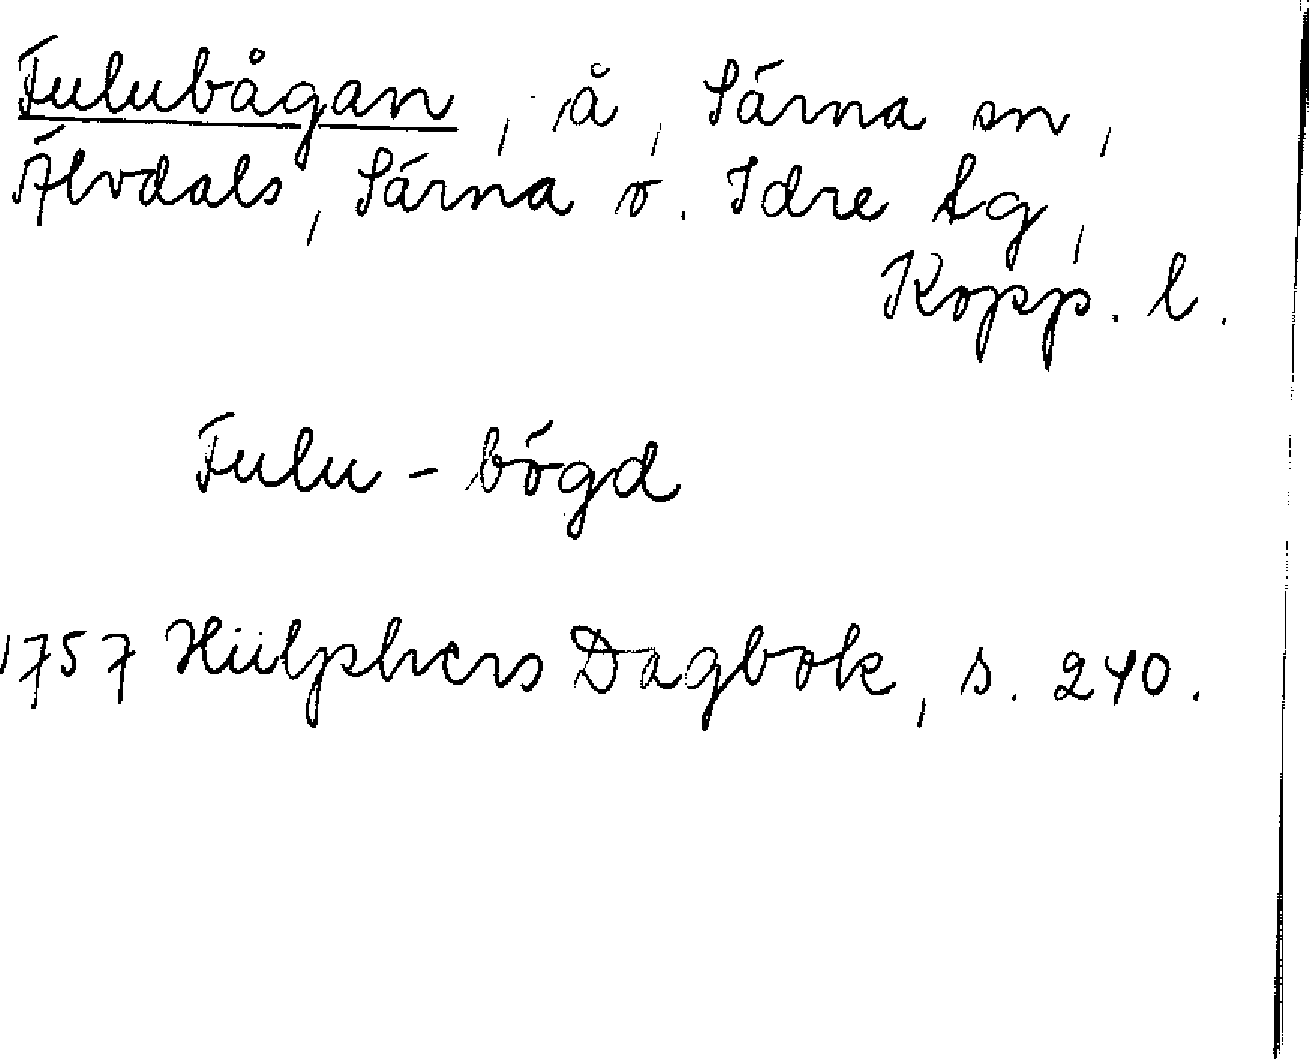 Fulubågan, å, Särna sn,
Älvdals, Särna o. Idre tg,
Kopp. l.
Fulu - bögd
1757 Hülphers Dagbok, s. 240.